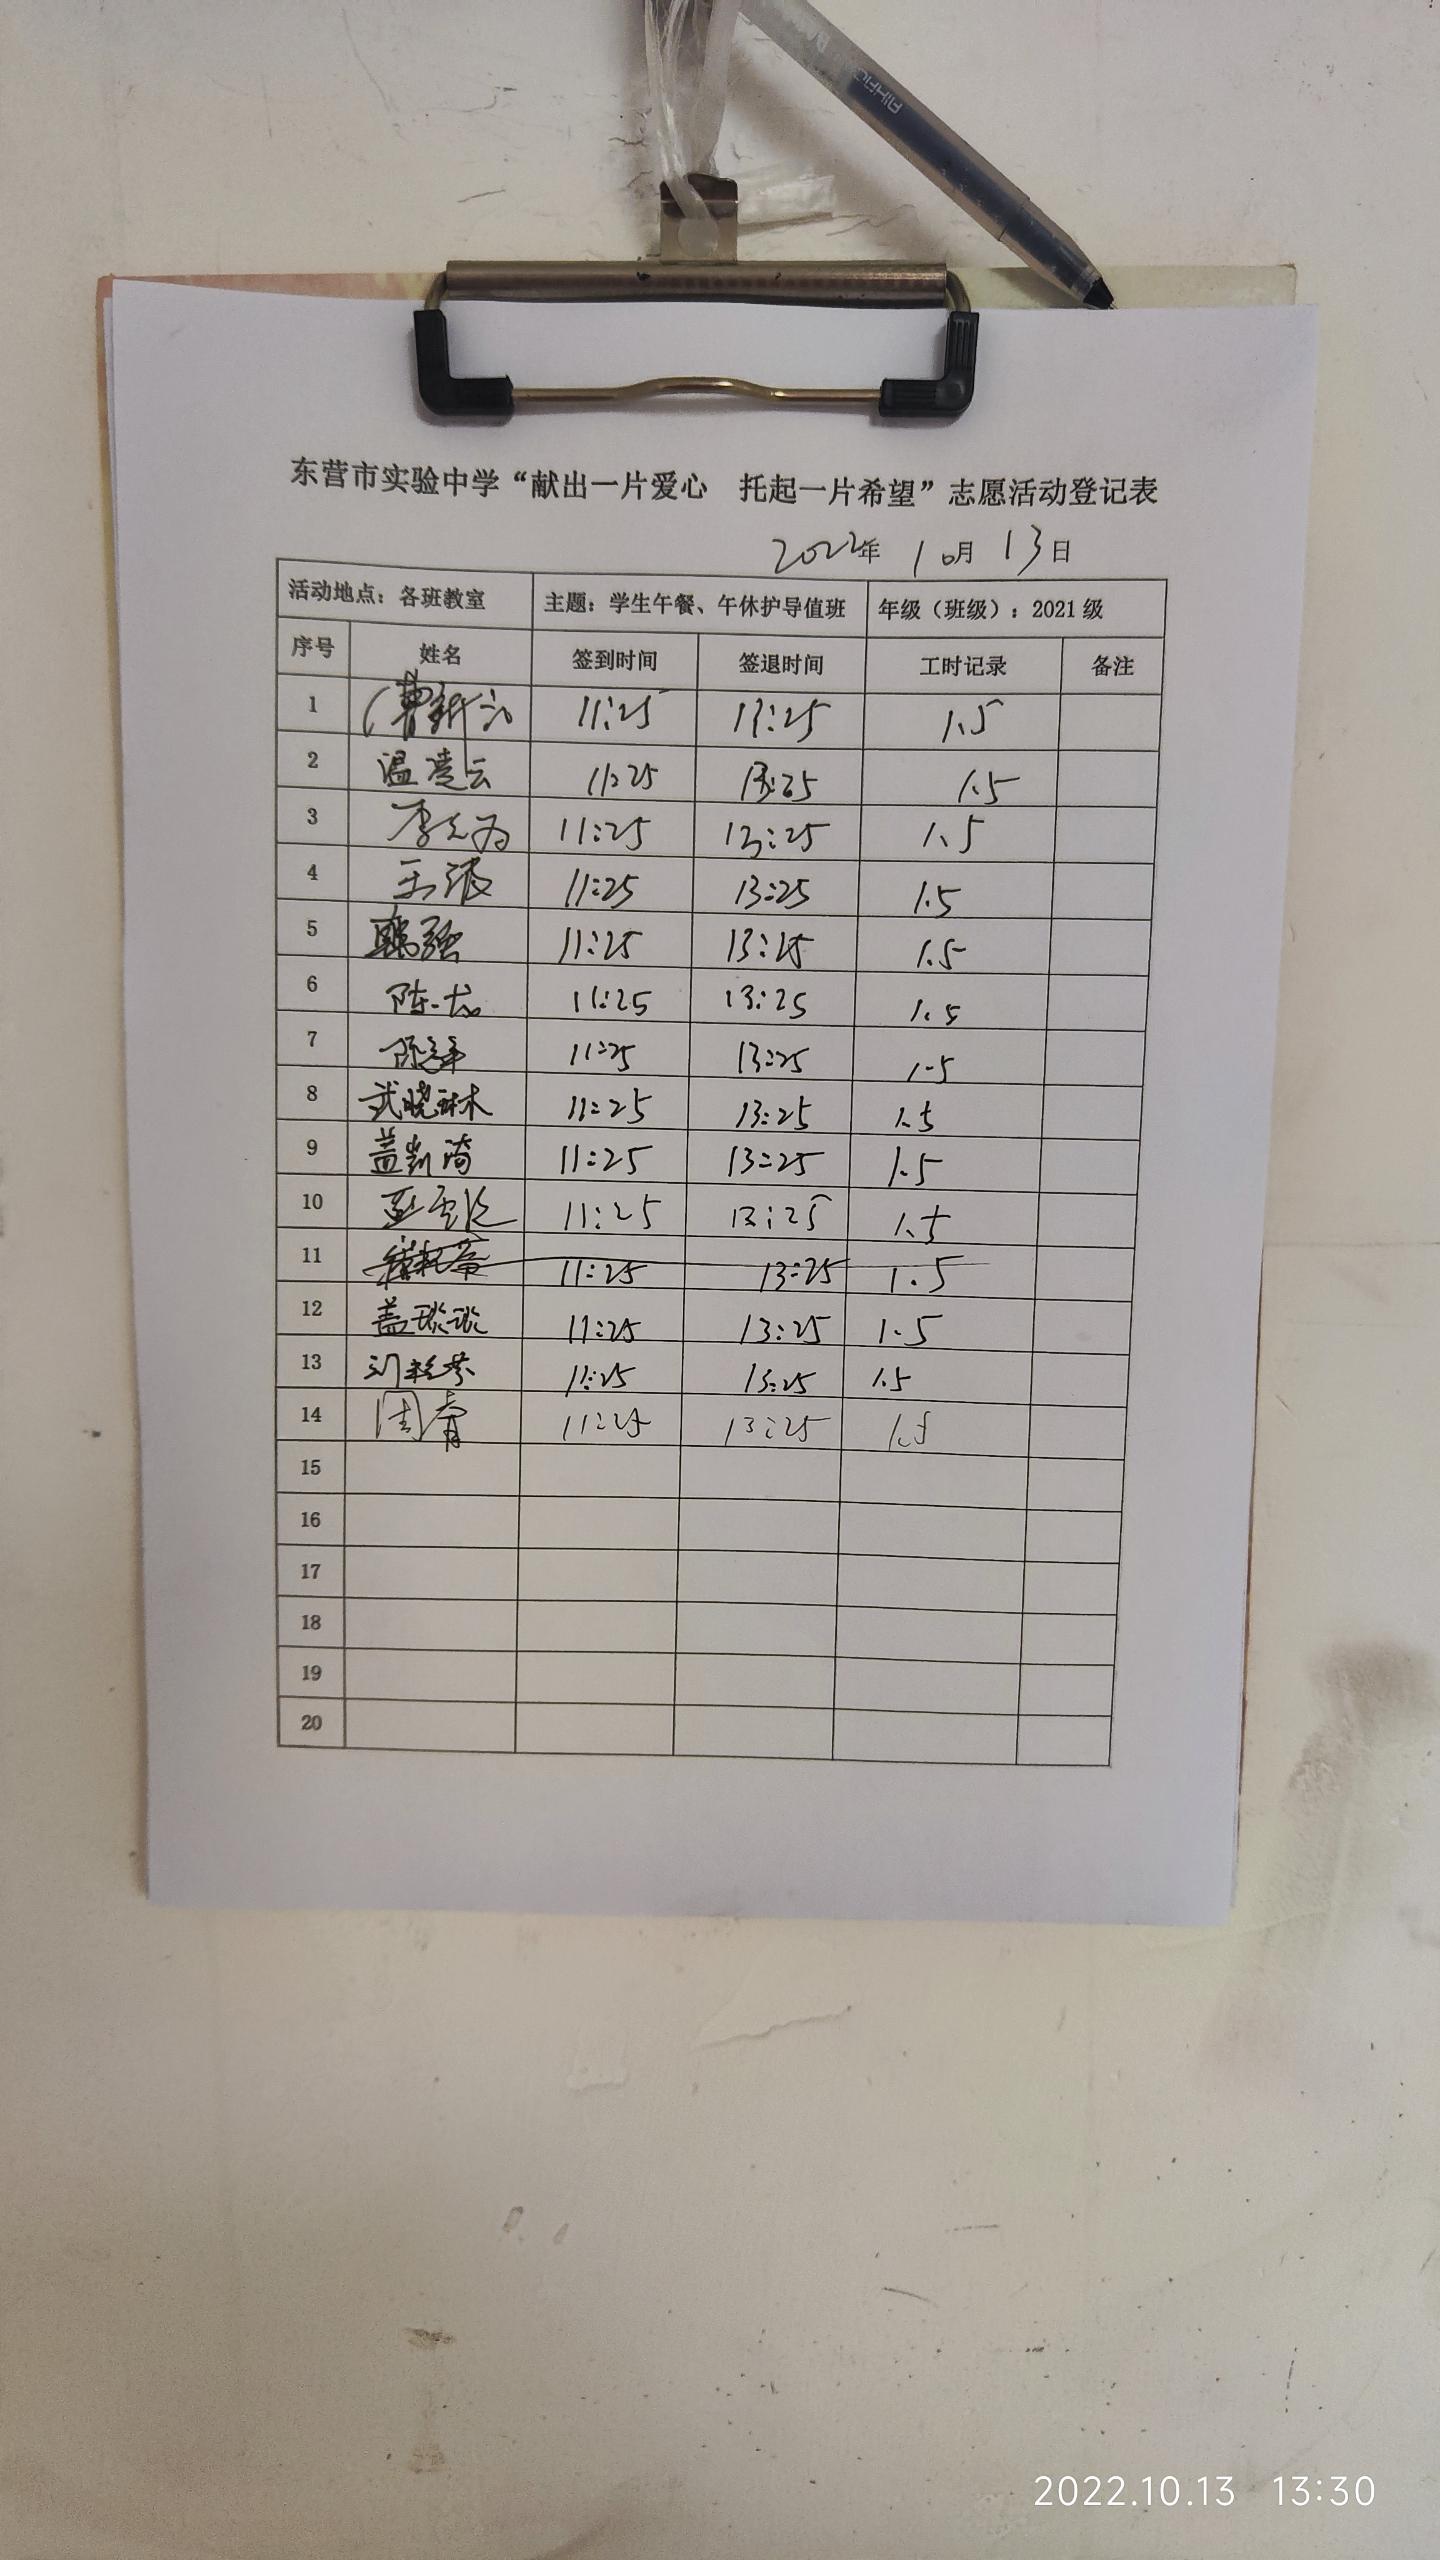 东营市实验中学“献出一片爱心 托起一片希望”志愿活动登记表
2022年 10月 13日
活动地点：各班教室 主题：学生午餐、午休护导值班 年级（班级）：2021级
序号 姓名 签到时间 签退时间 工时记录 备注
1 11:25 13:25 1.5
2 温凌云 11:25 13:25 1.5
3 11:25 13:25 1.5
4 11:25 13:25 1.5
5 11:25 13:25 1.5
6 11:25 13:25 1.5
7 11:25 13:25 1.5
8 武晓琳 11:25 13:25 1.5
9 盖凯琦 11:25 13:25 1.5
10 11:25 13:25 1.5
11 11:25 13:25 1.5
12 盖琰琰 11:25 13:25 1.5
13 11:25 13:25 1.5
14 周青 11:25 13:25 1.5
15
16
17
18
19
20
2022.10.13 13:30